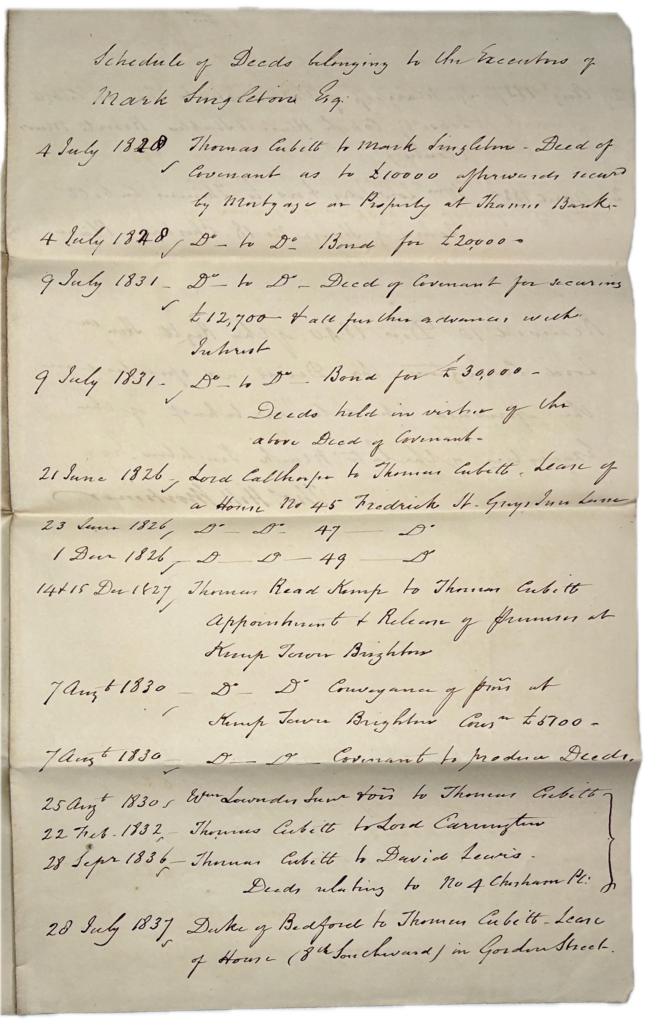 Schedule of Deeds belonging to the Executors of
Mark Singleton Esq:
4 July 1828 Thomas Cubitt to Mark Singleton - Deed of
Covenant as to £10000 afterwards secured
by Mortgage on Property at Thames Bank -
4 July 1828, Do - to Do Bond for £20,000 -
9 July 1831 - Do - to Do - Deed of Covenant for securing
£12,700 & all further advances with
Interest
9 July 1831 - Do - to Do - Bond for £30,000 -
Deeds held in virtue of the
above Deed of Covenant -
21 June 1826, Lord Calthorpe to Thomas Cubitt - Lease of
a House No 45 Fredrick St. Grays Inn Lane
23 June 1826, Do - Do - 47 — Do
1 Decr 1826, D — D — 49 — Do
14 & 15 Decr 1827, Thomas Read Kemp to Thomas Cubitt
Appointment & Release of premises at
Kemp Town Brighton
7 Augt 1830 - Do - Do Conveyance of pms at
Kemp Town Brighton Consn £5700 -
7 Augt 1830 - D - D - Covenant to produce Deeds.
25 Augt 1830, Wm Lowndes Junr & ors to Thomas Cubitt
22 Feb. 1832, - Thomas Cubitt to Lord Carrington
28 Sepr 1836 - Thomas Cubitt to David Lewis.
Deeds relating to No 4 Chesham Pl:
28 July 1837, Duke of Bedford to Thomas Cubitt - Lease
of House (8th Southward) in Gordon Street.